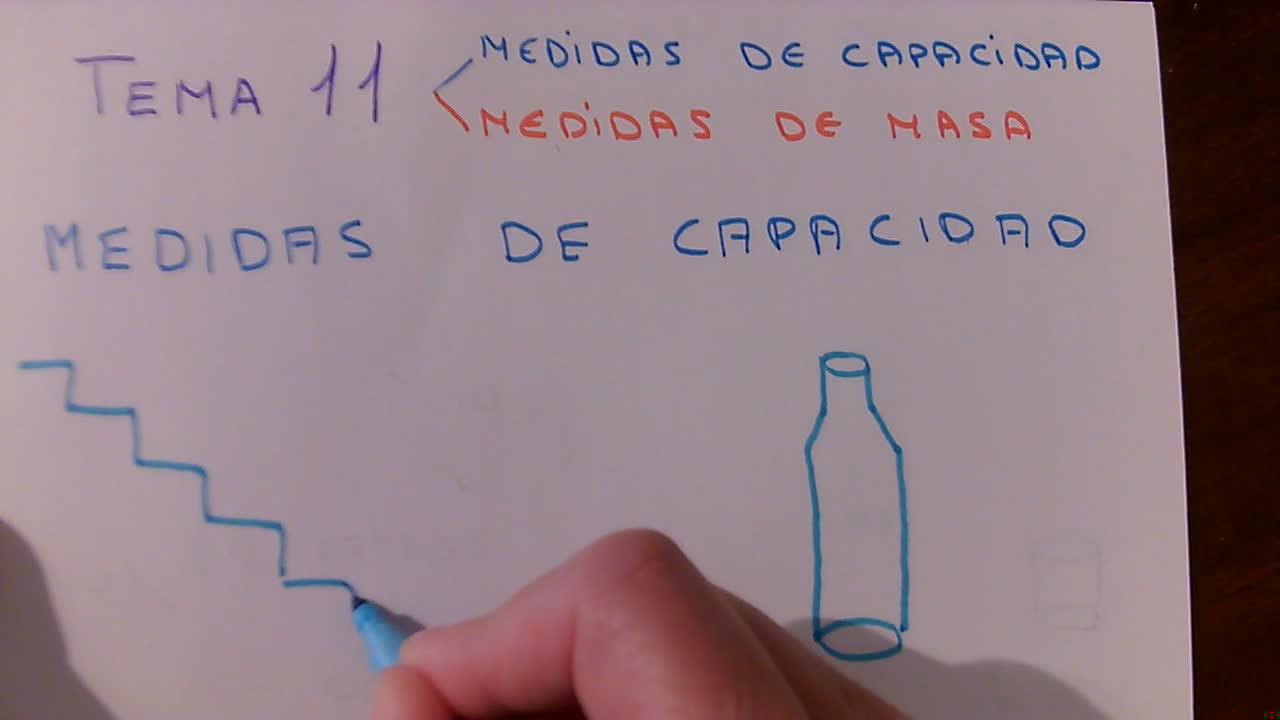 TEMA 11
MEDiDAS DE CAPACiDAD
MEDiDAS DE MASA
MEDIDAS DE CAPACIDAD